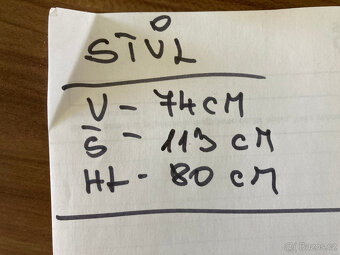 STŮL
V - 74 CM
Š - 113 CM
HL - 80 CM
© Bazos.cz